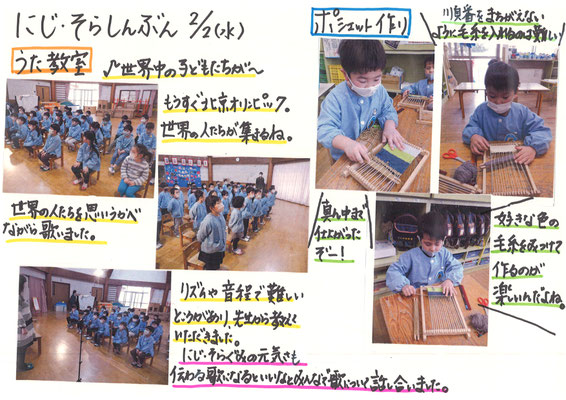 にじ・そらしんぶん 2/2(水)
うた教室
♪世界中の子どもたちが〜
もうすぐ北京オリンピック。
世界の人たちが集まるね。
世界の人たちを思いうかべ
ながら歌いました。
リズムや音程で難しい
ところがあり、先生から教えて
いただきました。
にじ・そらぐみの元気さも
伝わる歌になるといいなとみんなで歌について話し合いました。
ポシェット作り
順番をまちがえない
ように毛糸を入れるのは難しい
真ん中まで
仕上がった
ぞー!
好きな色の
毛糸をみつけて
作るのが
楽しいんだよね。